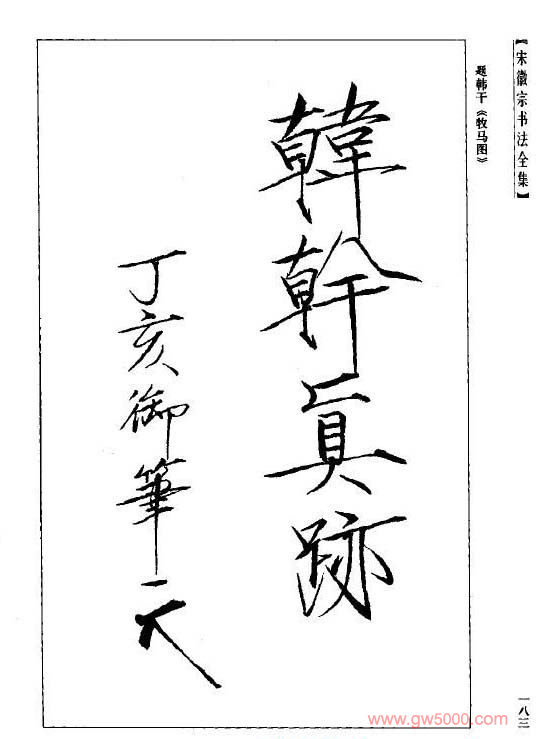 【宋徽宗书法全集】
题韩干《牧马图》
韓幹真跡
丁亥御筆
一八三
www.gw5000.com